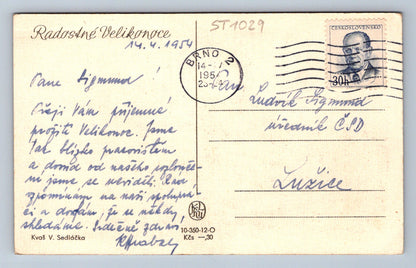 ST1029
Radostné Velikonoce
14.4.1954
BRNO 2
14
195
ČESKOSLOVENSKO
30h
Pane Sigmund!
Přeji Vám příjemné
prožití Velikonoc. Jsme
tak blízko pracovištěm
a dosud od našeho rozlouče-
ní jsme se neviděli. Rád
vzpomínám na naši spolupra-
ci a doufám, že se někdy
shledáme. Srdečně zdraví
Pan
Ludvík Sigmund
úředník ČSD
Lužice
10-350-12-O
Kčs —,30
Kvaš V. Sedláčka